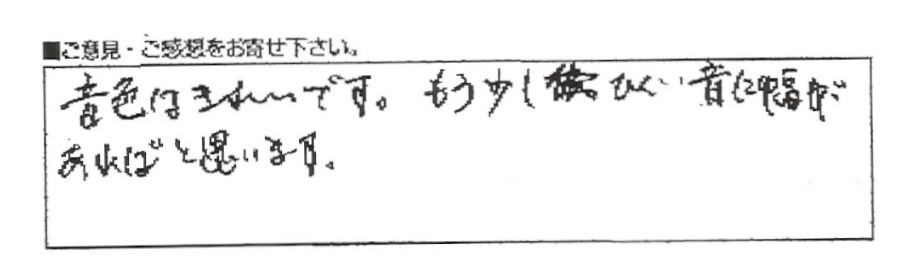 ■ご意見・ご感想をお寄せ下さい。
音色はきれいです。もう少し ひくい音に幅が
あればと思います。